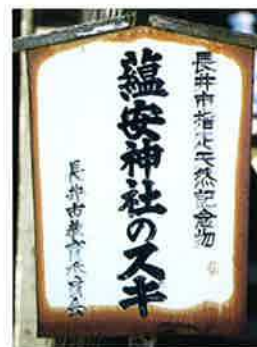 長井市指定天然記念物
蘊安神社のスギ
長井市教育委員会